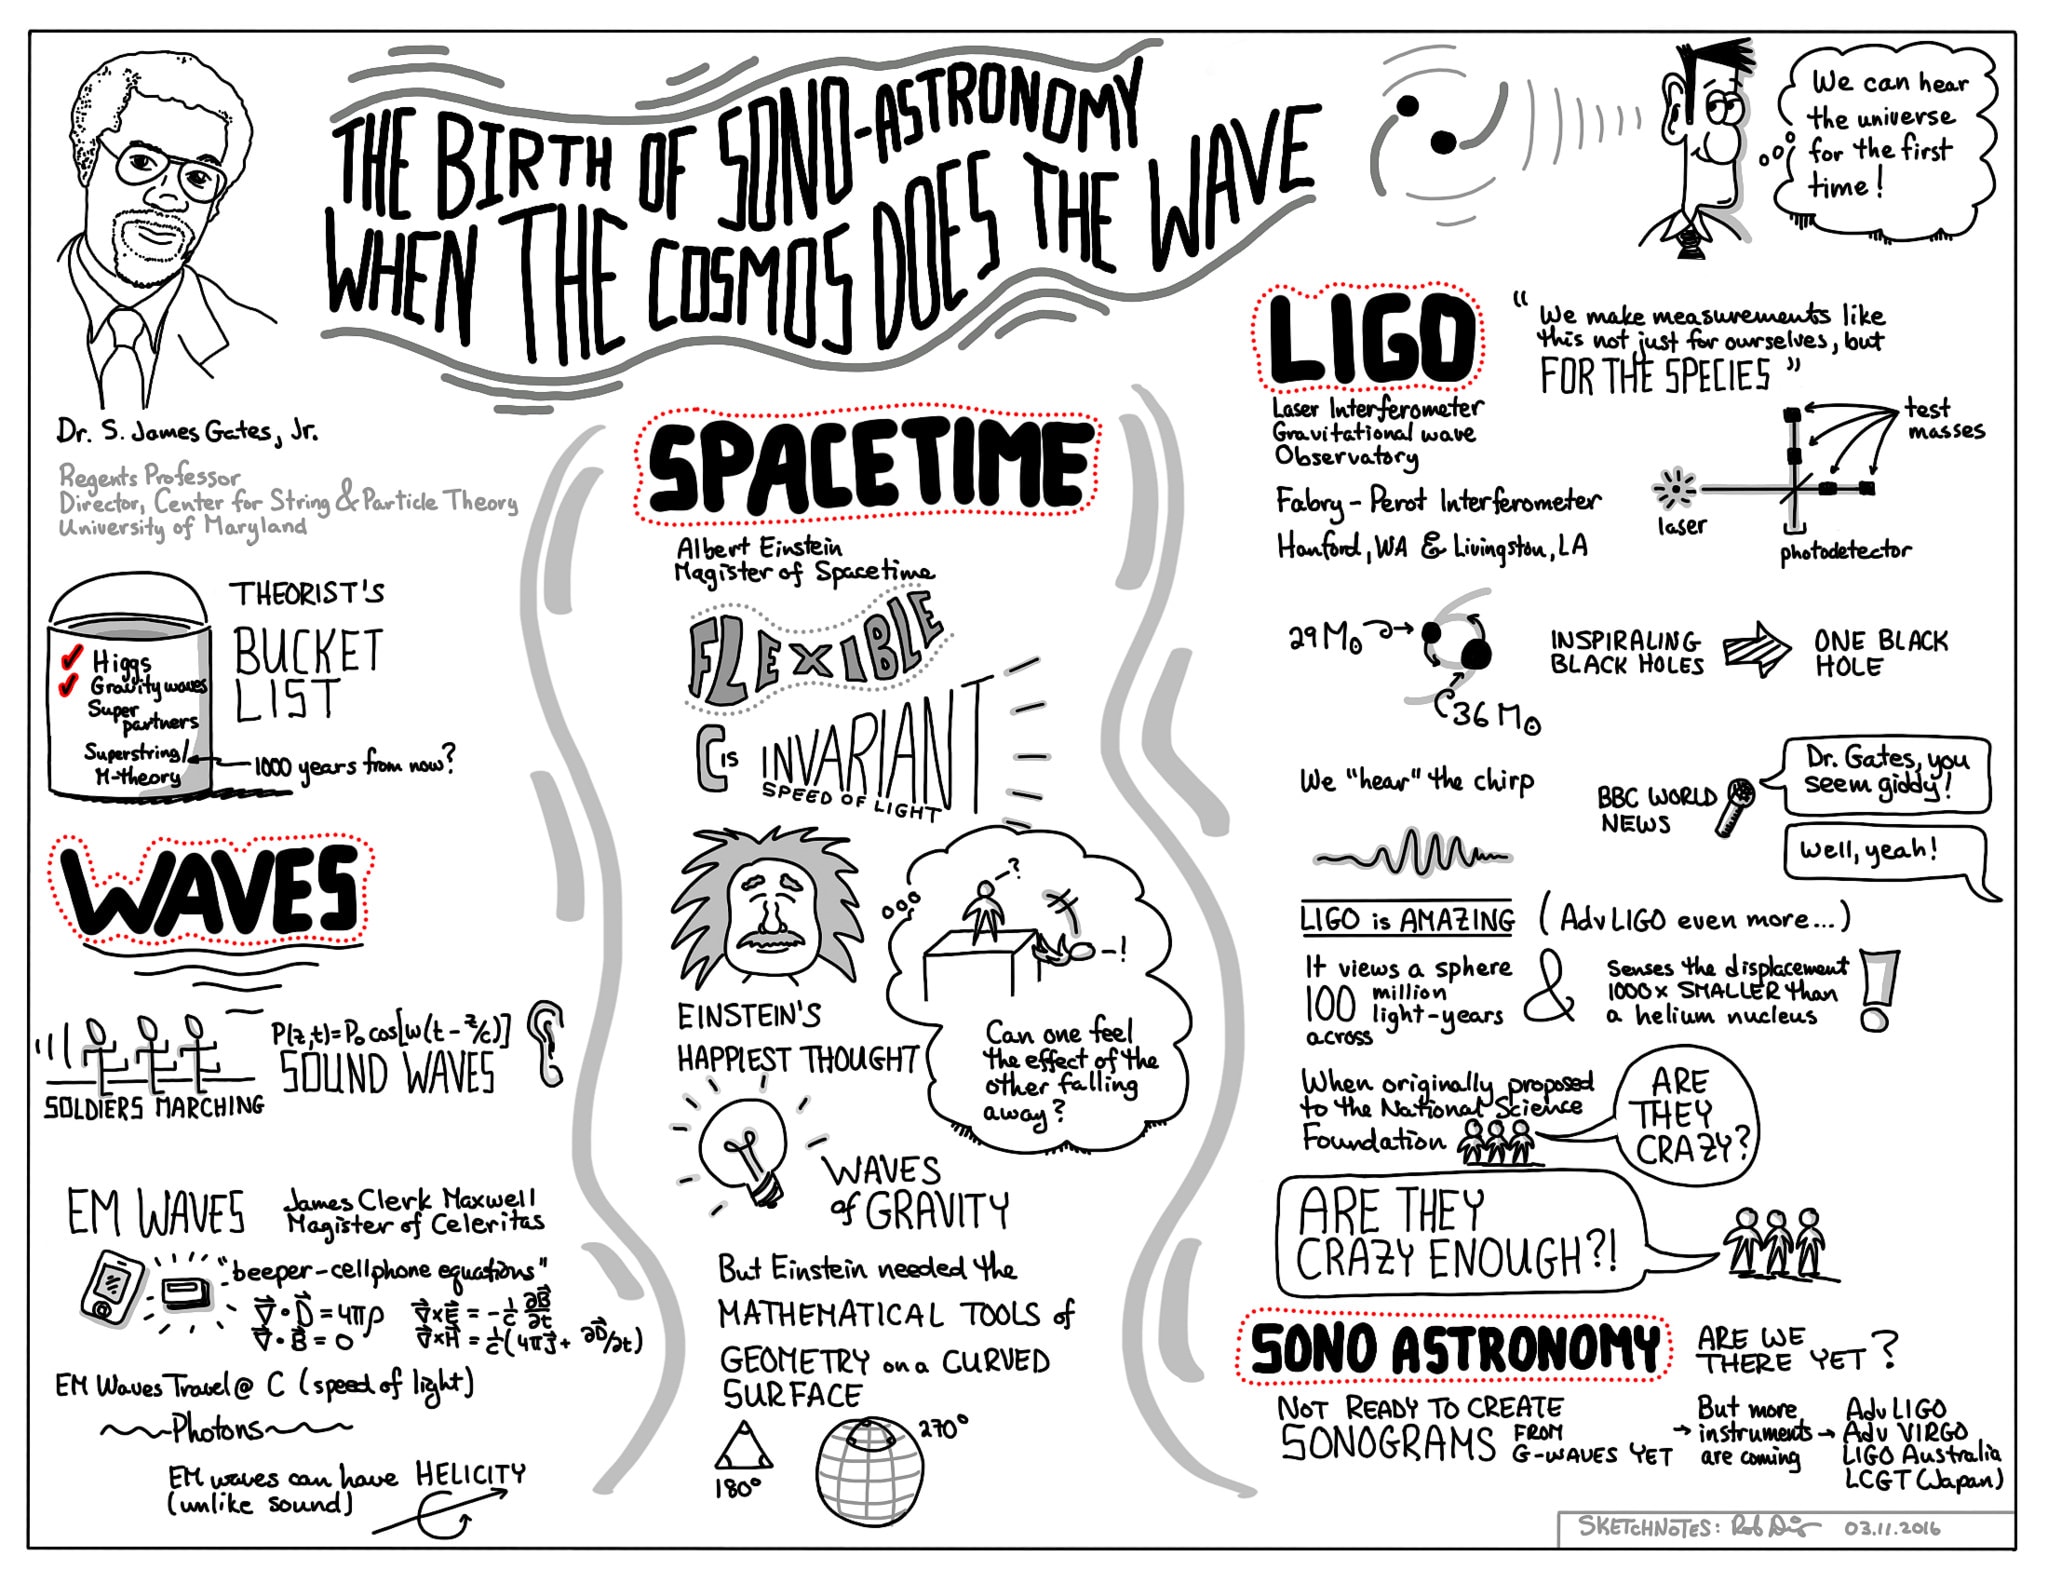 THE BIRTH OF SONO-ASTRONOMY
WHEN THE COSMOS DOES THE WAVE
We can hear
the universe
for the first
time!
Dr. S. James Gates, Jr.
Regents Professor
Director, Center for String & Particle Theory
University of Maryland
THEORIST'S
BUCKET
LIST
✓ Higgs
✓ Gravity waves
Super
partners
Superstring/
M-theory
1000 years from now?
WAVES
SOLDIERS MARCHING
P(z,t)=P₀ cos[w(t-z/c)]
SOUND WAVES
EM WAVES
James Clerk Maxwell
Magister of Celeritas
"beeper-cellphone equations"
∇⃗·D⃗=4πρ
∇⃗·B⃗=0
∇⃗×E⃗=-1/c ∂B⃗/∂t
∇⃗×H⃗=1/c(4πJ⃗+ ∂D⃗/∂t)
EM Waves Travel @ C (speed of light)
Photons
EM waves can have HELICITY
(unlike sound)
SPACETIME
Albert Einstein
Magister of Spacetime
FLEXIBLE
C IS INVARIANT
SPEED OF LIGHT
?
-!
Can one feel
the effect of the
other falling
away?
EINSTEIN'S
HAPPIEST THOUGHT
WAVES
of GRAVITY
But Einstein needed the
MATHEMATICAL TOOLS of
GEOMETRY on a CURVED
SURFACE
180°
270°
LIGO
Laser Interferometer
Gravitational wave
Observatory
Fabry-Perot Interferometer
Hanford, WA & Livingston, LA
"We make measurements like
this not just for ourselves, but
FOR THE SPECIES"
test
masses
laser
photodetector
29 M☉
36 M☉
INSPIRALING
BLACK HOLES
ONE BLACK
HOLE
We "hear" the chirp
BBC WORLD
NEWS
Dr. Gates, you
seem giddy!
Well, yeah!
LIGO is AMAZING (Adv LIGO even more...)
It views a sphere
100 million
light-years
across
&
Senses the displacement
1000x SMALLER than
a helium nucleus
!
When originally proposed
to the National Science
Foundation
ARE
THEY
CRAZY?
ARE THEY
CRAZY ENOUGH?!
SONO ASTRONOMY
ARE WE
THERE YET?
NOT READY TO CREATE
SONOGRAMS FROM
G-WAVES YET
But more
instruments
are coming
Adv LIGO
Adv VIRGO
LIGO Australia
LCGT (Japan)
SKETCHNOTES: Rob D 03.11.2016